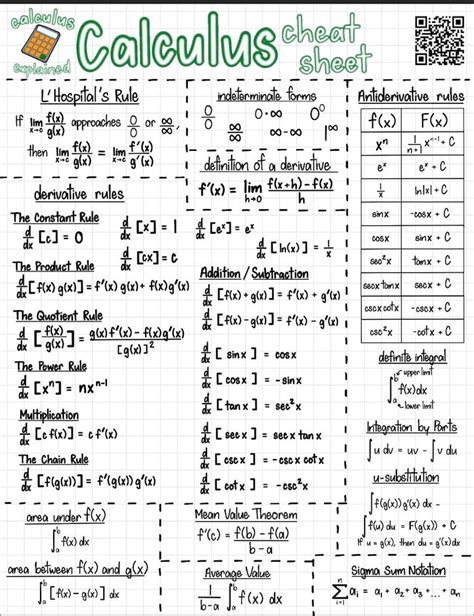 calculus
explained
Calculus cheat
sheet
L'Hospital's Rule
If lim x→c f(x)/g(x) approaches 0/0 or ∞/∞,
then lim x→c f(x)/g(x) = lim x→c f'(x)/g'(x)
indeterminate forms
0/0 0·∞ 0⁰
∞/∞ ∞-∞ 1^∞
definition of a derivative
f'(x) = lim h→0 f(x+h) - f(x)/h
Antiderivative rules
f(x) F(x)
xⁿ 1/n+1 xⁿ⁺¹ + C
eˣ eˣ + C
1/x ln|x| + C
sinx -cosx + C
cosx sinx + C
sec²x tanx + C
secx tanx secx + C
cscx cotx -cscx + C
csc²x -cotx + C
derivative rules
The Constant Rule
d/dx [c] = 0
d/dx [x] = 1
d/dx [cx] = c
d/dx [eˣ] = eˣ
d/dx [ln(x)] = 1/x
The Product Rule
d/dx [f(x) g(x)] = f'(x) g(x) + f(x)g'(x)
The Quotient Rule
d/dx [f(x)/g(x)] = g(x)f'(x) - f(x)g'(x)/[g(x)]²
The Power Rule
d/dx [xⁿ] = nxⁿ⁻¹
Multiplication
d/dx [c f(x)] = c f'(x)
The Chain Rule
d/dx [f(g(x))] = f'(g(x)) g'(x)
Addition / Subtraction
d/dx [f(x) + g(x)] = f'(x) + g'(x)
d/dx [f(x) - g(x)] = f'(x) - g'(x)
d/dx [ sinx ] = cosx
d/dx [ cosx ] = -sinx
d/dx [ tanx ] = sec²x
d/dx [ secx ] = secx tanx
d/dx [ cscx ] = -cscx cotx
d/dx [ cotx ] = -csc²x
definite integral
upper limit
∫ₐᵇ f(x)dx
lower limit
Integration by Parts
∫u dv = uv - ∫v du
u-substitution
∫f(g(x))g'(x) dx =
∫f(u) du = F(g(x)) + C
If u = g(x), then du = g'(x)dx
area under f(x)
∫ₐᵇ f(x)dx
area between f(x) and g(x)
∫ₐᵇ [f(x) - g(x)] dx
Mean Value Theorem
f'(c) = f(b) - f(a)/b-a
Average Value
1/b-a ∫ₐᵇ f(x) dx
Sigma Sum Notation
Σ i=1 n aᵢ = a₁ + a₂ + a₃ + ... + aₙ